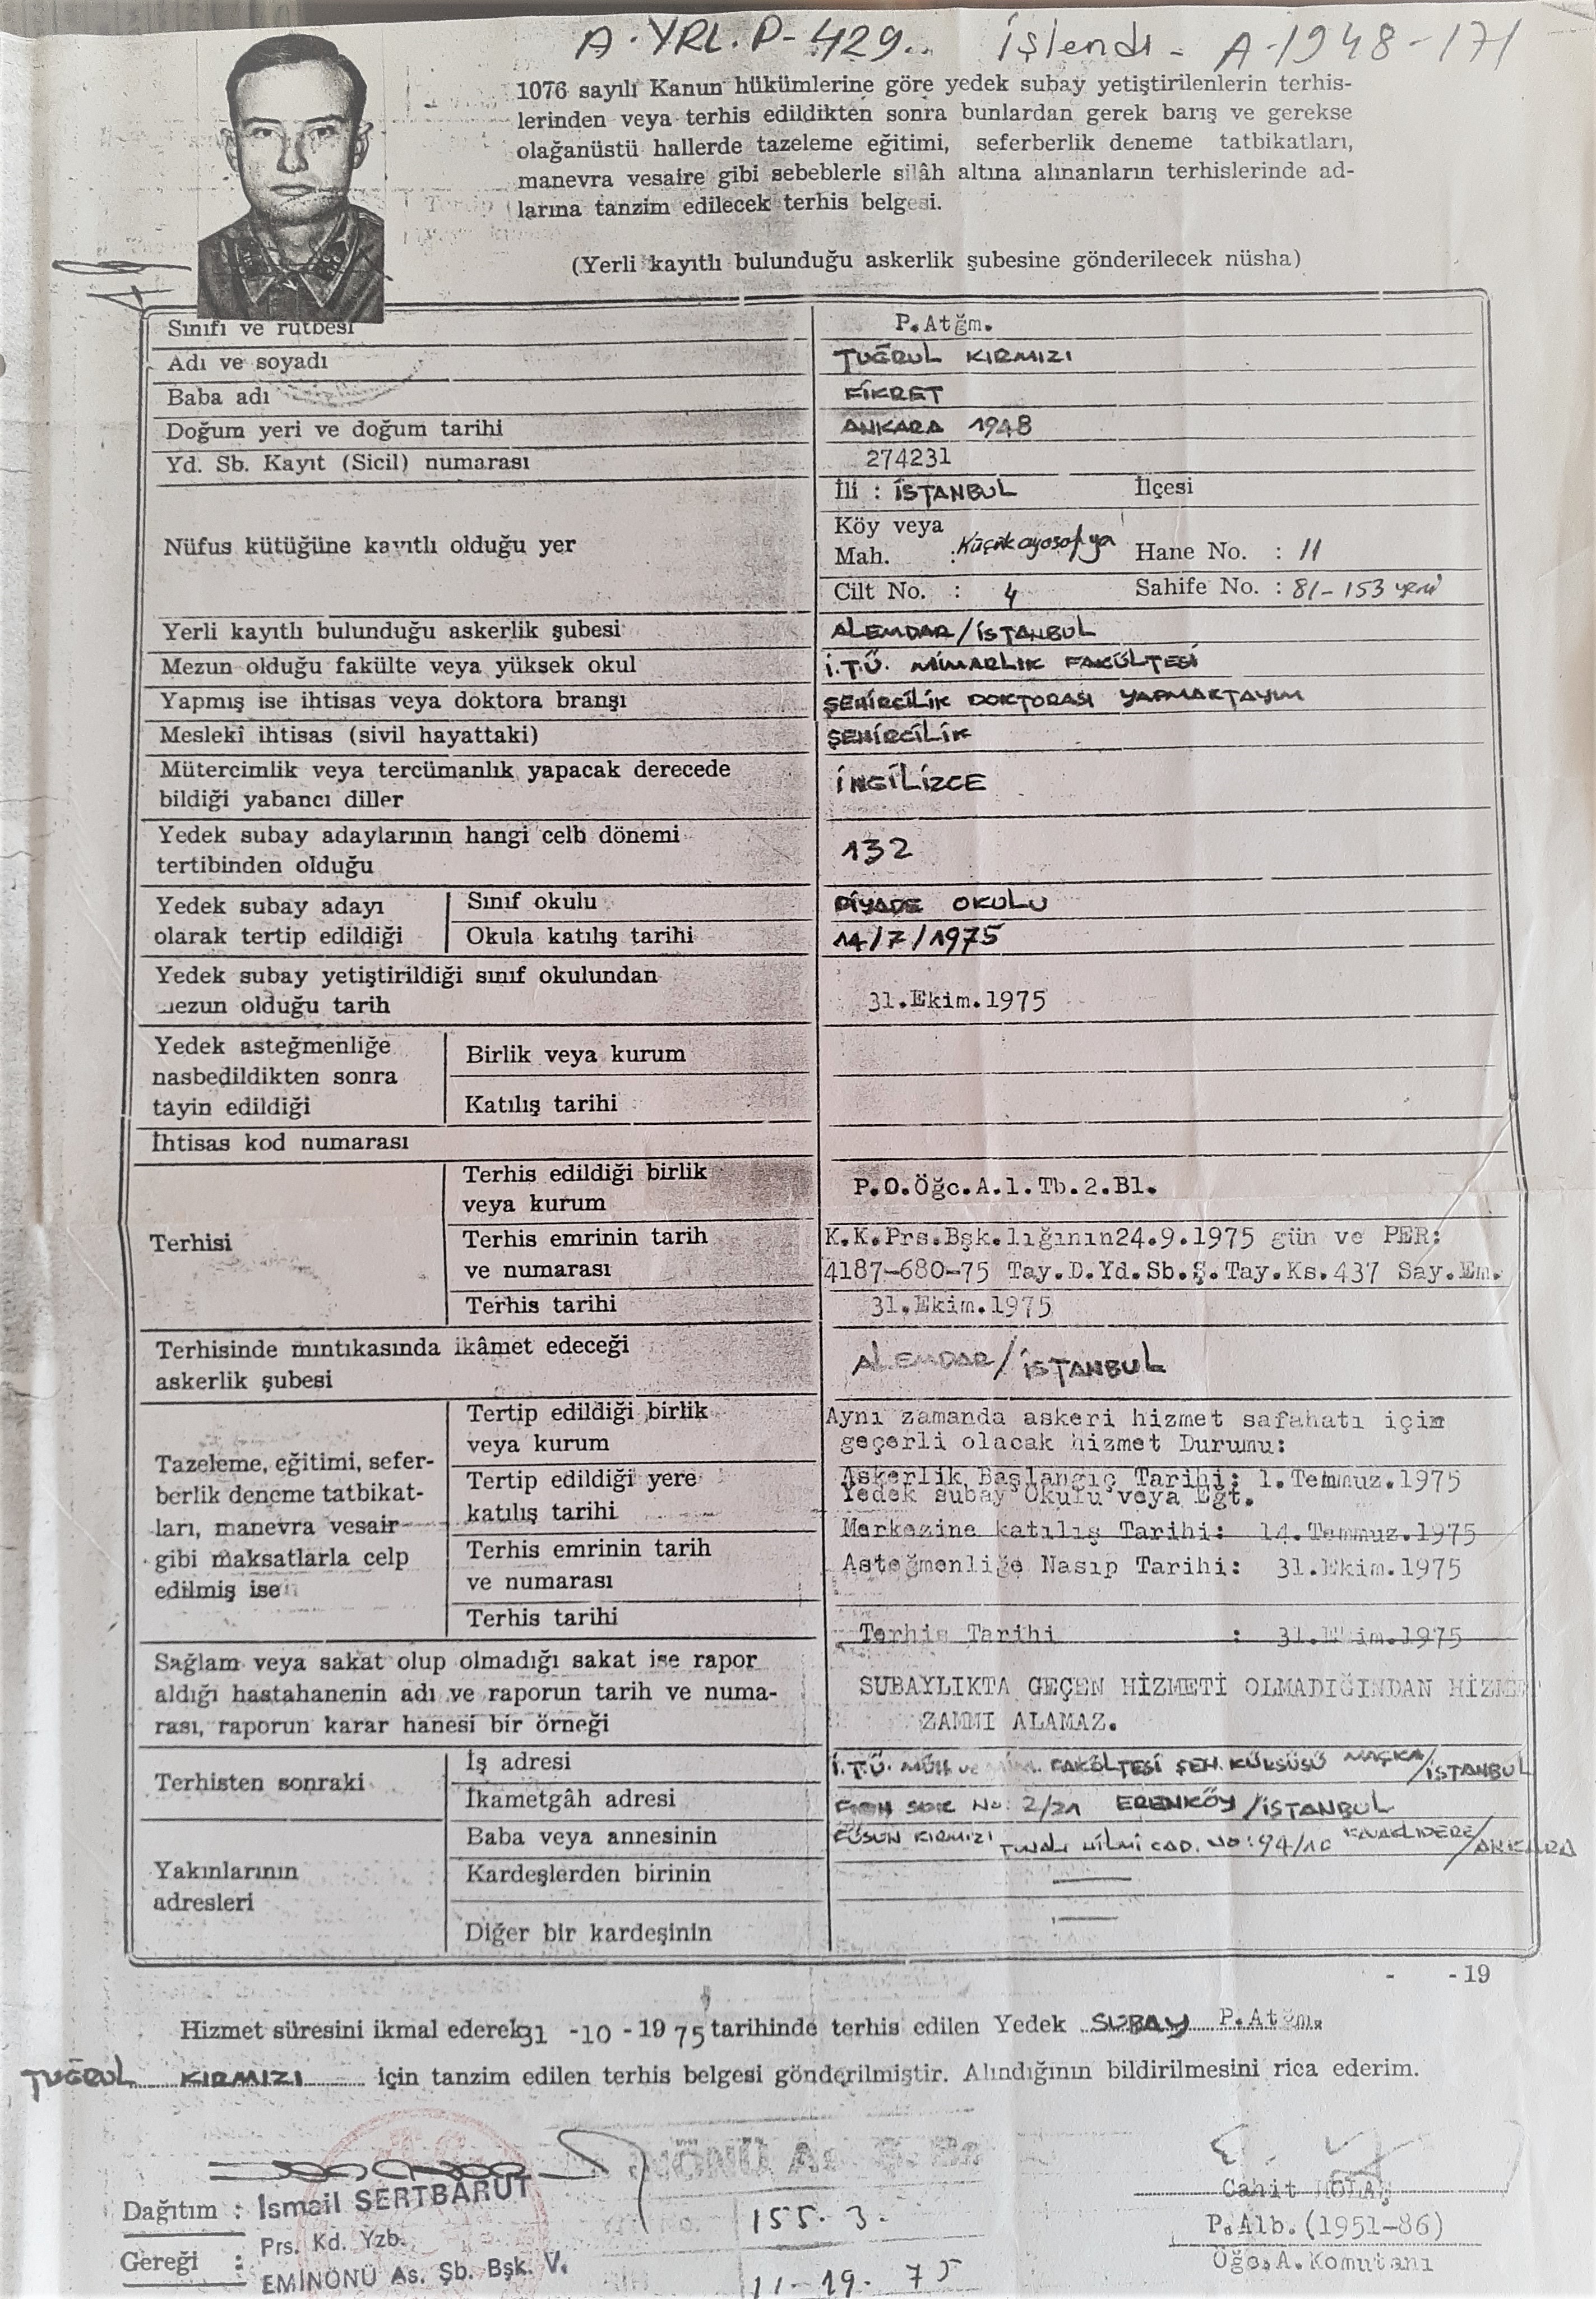 A.YRL.P-429.. İşlendi - A-1948-171
1076 sayılı Kanun hükümlerine göre yedek subay yetiştirilenlerin terhis-
lerinden veya terhis edildikten sonra bunlardan gerek barış ve gerekse
olağanüstü hallerde tazeleme eğitimi, seferberlik deneme tatbikatları,
manevra vesaire gibi sebeblerle silâh altına alınanların terhislerinde ad-
larına tanzim edilecek terhis belgesi.
(Yerli kayıtlı bulunduğu askerlik şubesine gönderilecek nüsha)
Sınıfı ve rütbesi P.Atğm.
Adı ve soyadı TUĞRUL KIRMIZI
Baba adı FİKRET
Doğum yeri ve doğum tarihi ANKARA 1948
Yd. Sb. Kayıt (Sicil) numarası 274231
Nüfus kütüğüne kayıtlı olduğu yer
İli : İSTANBUL İlçesi
Köy veya
Mah. : Küçükayasofya Hane No. : 11
Cilt No. : 4 Sahife No. : 81-153 yeni
Yerli kayıtlı bulunduğu askerlik şubesi ALEMDAR/İSTANBUL
Mezun olduğu fakülte veya yüksek okul İ.T.Ü. MİMARLIK FAKÜLTESİ
Yapmış ise ihtisas veya doktora branşı ŞEHİRCİLİK DOKTORASI YAPMAKTAYIM
Mesleki ihtisas (sivil hayattaki) ŞEHİRCİLİK
Mütercimlik veya tercümanlık yapacak derecede
bildiği yabancı diller İNGİLİZCE
Yedek subay adaylarının hangi celb dönemi
tertibinden olduğu 132
Yedek subay adayı
olarak tertip edildiği
Sınıf okulu PİYADE OKULU
Okula katılış tarihi 14/7/1975
Yedek subay yetiştirildiği sınıf okulundan
mezun olduğu tarih 31.Ekim.1975
Yedek asteğmenliğe
nasbedildikten sonra
tayin edildiği
Birlik veya kurum
Katılış tarihi
İhtisas kod numarası
Terhisi
Terhis edildiği birlik
veya kurum P.O.Öğc.A.1.Tb.2.Bl.
Terhis emrinin tarih
ve numarası
K.K.Prs.Bşk.lığının24.9.1975 gün ve PER:
4187-680-75 Tay.D.Yd.Sb.Ş.Tay.Ks.437 Say.Em.
Terhis tarihi 31.Ekim.1975
Terhisinde mıntıkasında ikâmet edeceği
askerlik şubesi ALEMDAR/İSTANBUL
Tazeleme, eğitimi, sefer-
berlik deneme tatbikat-
ları, manevra vesair
gibi maksatlarla celp
edilmiş ise
Tertip edildiği birlik
veya kurum
Tertip edildiği yere
katılış tarihi
Terhis emrinin tarih
ve numarası
Terhis tarihi
Aynı zamanda askeri hizmet safahatı için
geçerli olacak hizmet Durumu:
Askerlik Başlangıç Tarihi: 1.Temmuz.1975
Yedek subay Okulu veya Eğt.
Merkezine katılış Tarihi: 14.Temmuz.1975
Asteğmenliğe Nasıp Tarihi: 31.Ekim.1975
Terhis Tarihi : 31.Ekim.1975
Sağlam veya sakat olup olmadığı sakat ise rapor
aldığı hastahanenin adı ve raporun tarih ve numa-
rası, raporun karar hanesi bir örneği
SUBAYLIKTA GEÇEN HİZMETİ OLMADIĞINDAN HİZMET
ZAMMI ALAMAZ.
Terhisten sonraki
İş adresi İ.T.Ü. MÜH ve MİM. FAKÜLTESİ ŞEH. KÜRSÜSÜ MAÇKA/İSTANBUL
İkametgâh adresi SOK No: 2/21 ERENKÖY/İSTANBUL
Yakınlarının
adresleri
Baba veya annesinin FÜSUN KIRMIZI TUNALI HİLMİ CAD. No: 94/10 KAVAKLIDERE/ANKARA
Kardeşlerden birinin —
Diğer bir kardeşinin —
- -19
Hizmet süresini ikmal ederek 31 -10 -1975 tarihinde terhis edilen Yedek SUBAY P.Atğm.
TUĞRUL KIRMIZI için tanzim edilen terhis belgesi gönderilmiştir. Alındığının bildirilmesini rica ederim.
Dağıtım : İsmail SERTBARUT
Gereği : Prs. Kd. Yzb.
EMİNÖNÜ As. Şb. Bşk. V.
155.3.
11-19-75
Cahit
P.Alb.(1951-86)
Öğc.A.Komutanı